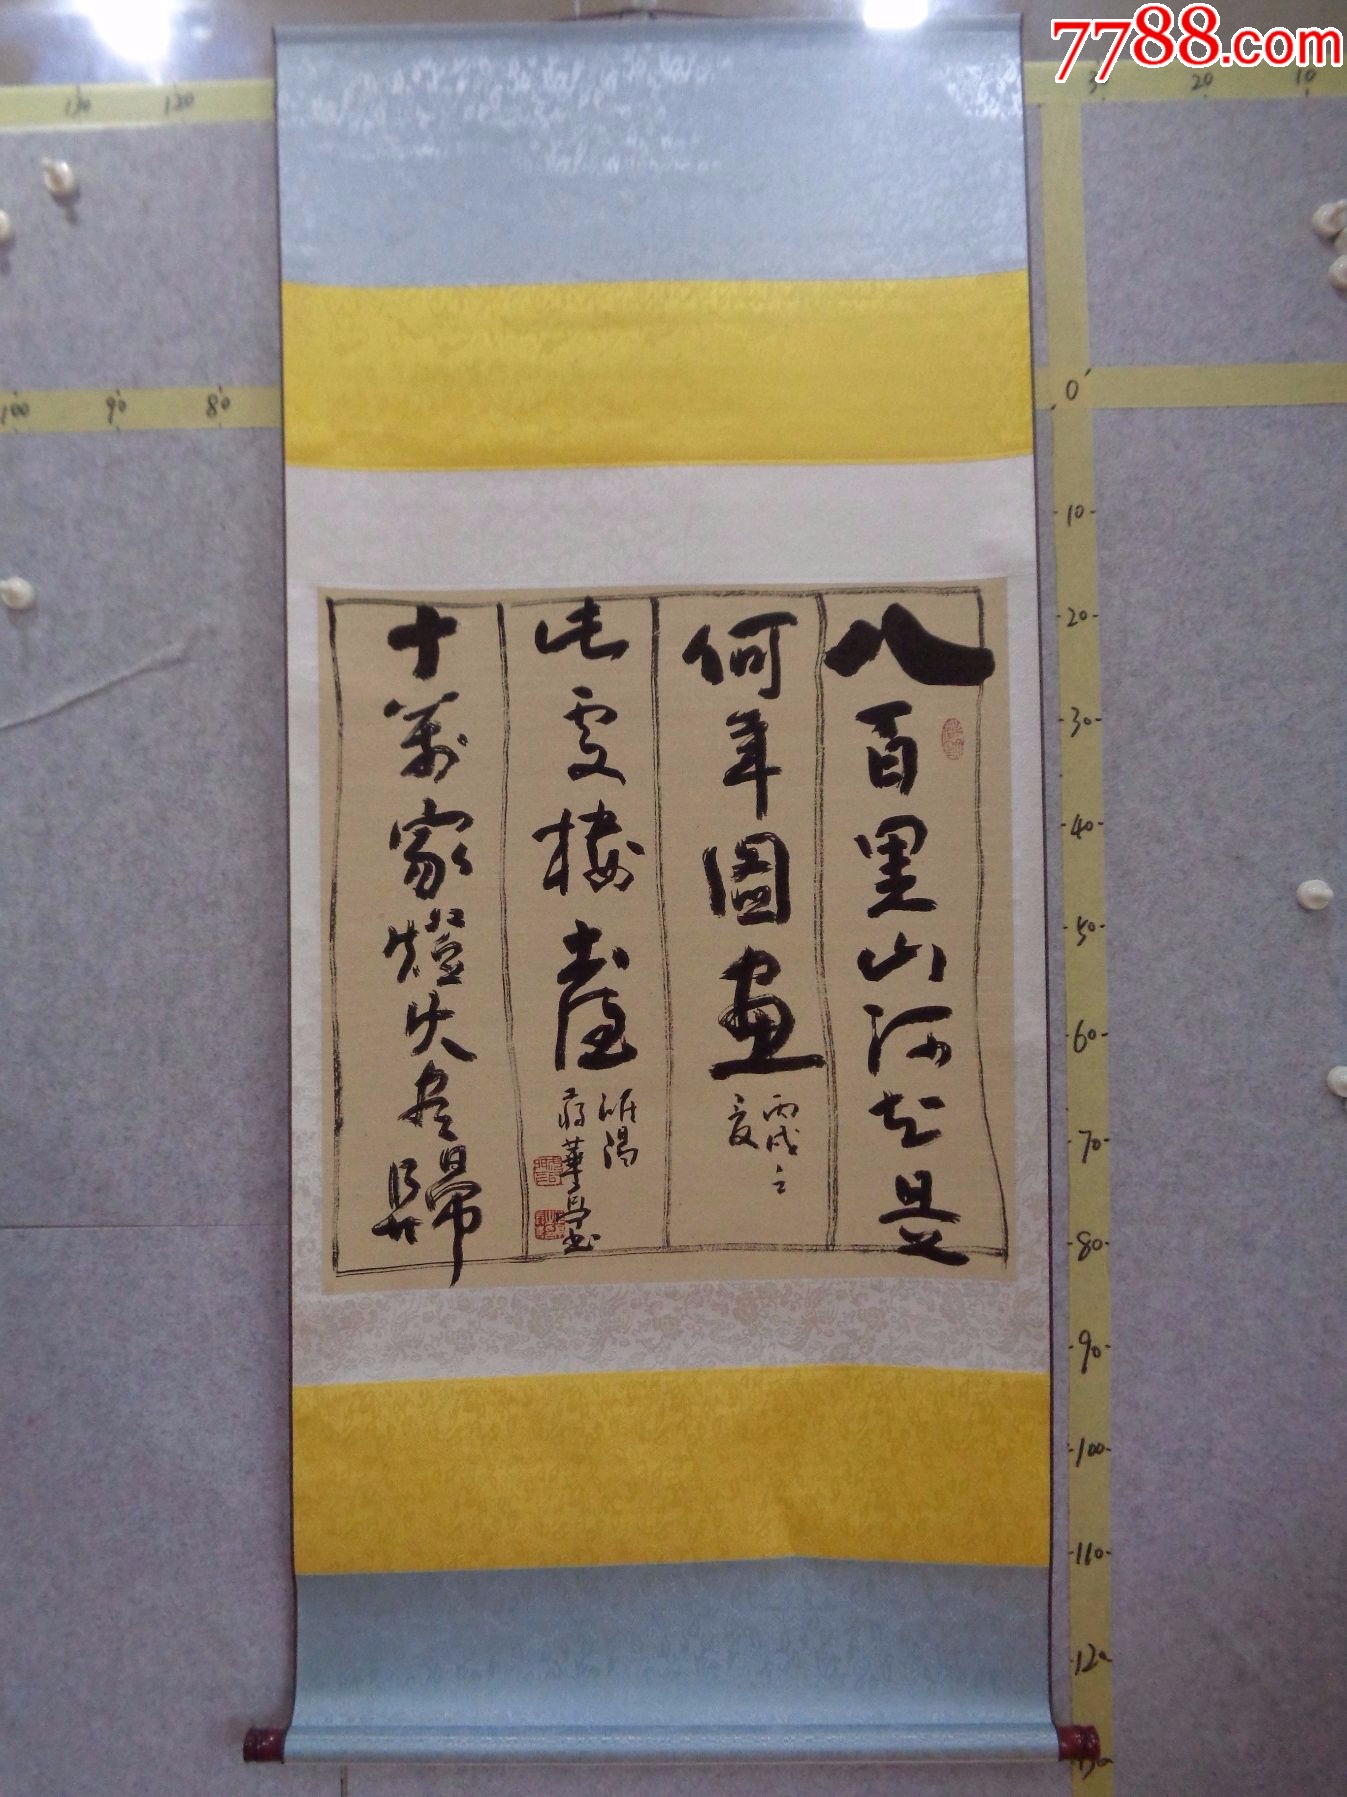 7788.com
八百里山河知是
何年圖畫
丙戌之
夏
十萬家燈火盡歸
此處樓臺
睢陽
蔣華亭書
130 120
30 20 10
100 90 80
0
10
20
30
40
50
60
70
80
90
100
110
120
130